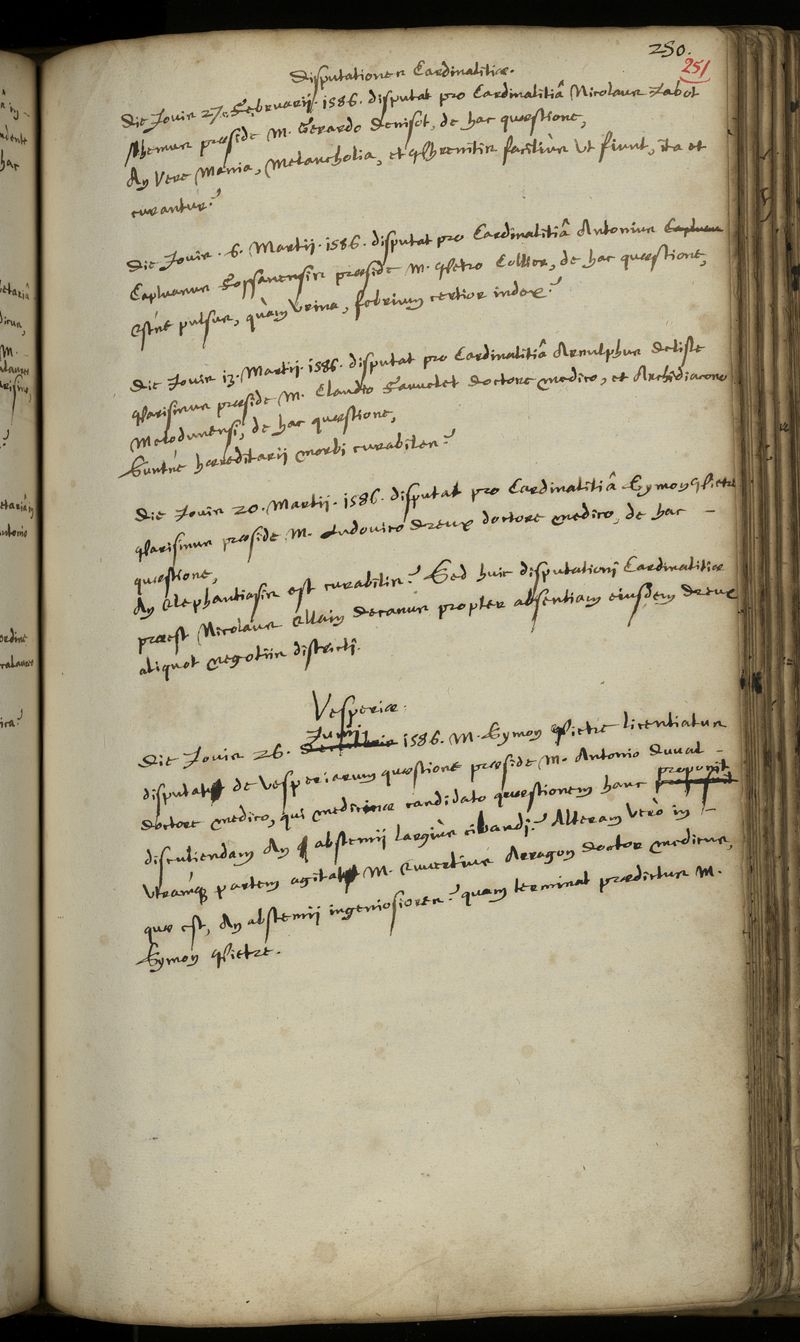 250.
251
Disputationes Cardinalitiæ.
Die Jovis 27. Februarij. 1586. disputat pro Cardinalitiâ Nicolaus Jabot
Rhemus præside M. Gerardo Denisot, de hac quæstione,
An Vere Mania, Melancholia, et Phrenitis faciliùs ut fiunt, ita et
curantur?
Die Jovis. 6. Martij. 1586. disputat pro Cardinalitiâ Antonius Caplueus
Capluanus Fossanensis præside M. Petro Collier, de hac quæstione,
Estne pulsus, quàm Vrina, febrium certior index?
Die Jovis 13. Martij. 1586. disputat pro Cardinalitiâ Arnulphus Delisle
Parisinus præside M. Claudio Fauvelet doctore medico, et Archidiacono
Melodunensi, de hac quæstione,
Suntne hæreditarij morbi curabiles?
Die Jovis 20. Martij. 1586. disputat pro Cardinalitiâ Symon Pietre
Parisinus præside M. Ludovico Dreux doctore medico, de hac
quæstione,
An Elephantiasis est curabilis? Sed huic disputationi Cardinalitiæ
præest Nicolaus Ellain decanus propter absentiam eiusdem Dreux
aliquot negotiis districti.
Vesperiæ.
Junij
Die Jovis 26. 1586. M. Symon Pietre licentiatus
disputat de Vesperiarum quæstione præside M. Antonio Duval
doctore medico, qui medicinæ candidato quæstionem hanc proponit
discutiendam An abstemij largiùs cibandi? Alteram verò in
Vtramque partem agitat M. Quiertinus Arragon doctor medicus,
quæ est, An abstemij ingeniosiores? quam terminat prædictus M.
Symon Pietre.